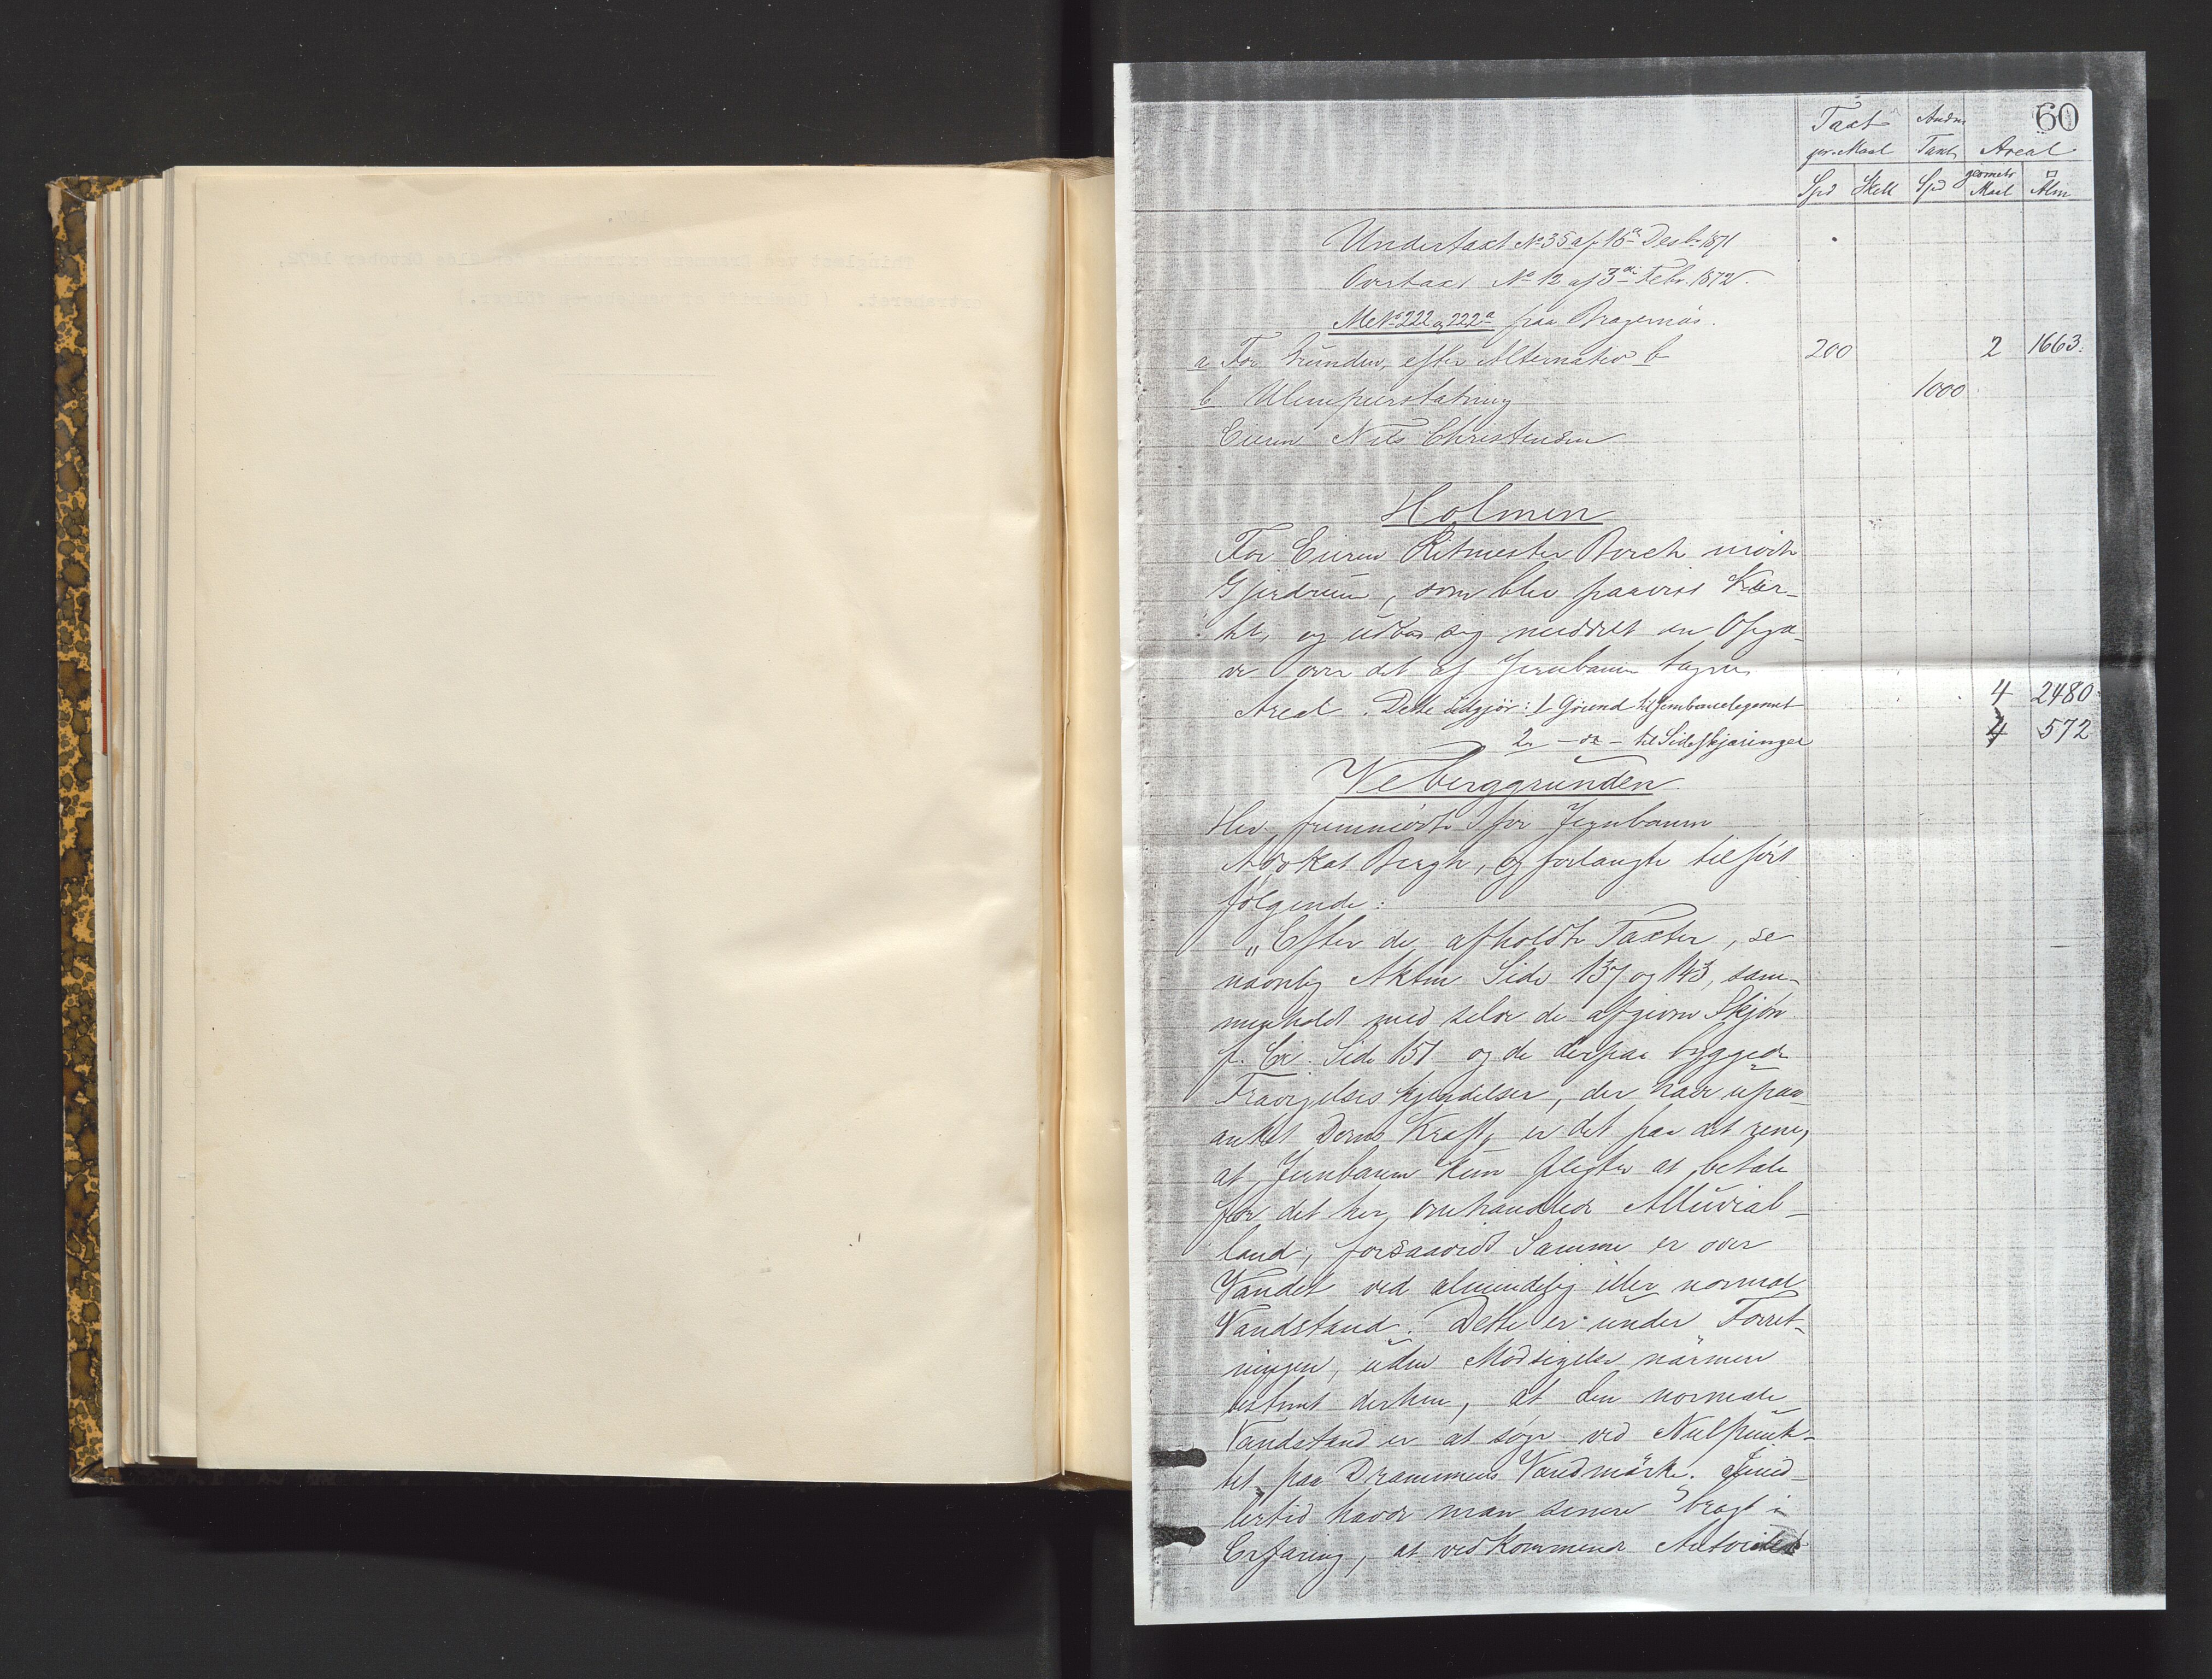 60
Taxt Anden
pr. Maal Taxt Areal
Spd Skill Spd geometr Maal □ Alm
Undertaxt No 35 af 16de Desbr 1871
Overtaxt No 12 af 3die Febr. 1872.
Me No 222 og 222a paa Bragernæs.
a For Grunden, efter Alternativ b 200 2 1663.
b Ulempeerstatning 1000
Eieren Nils Christensen
Holmen
For Eieren Ritmester Borch mødte
Gjerdrum, som blev paavist Kar-
tet, og udbad sig meddelt en Opga-
ve over det af Jernbanen tagne
Areal. Dette udgjør: 1 Grund til Jernbanelegemet 4 2480
2. - do - til Sideskjæringer 4 572
Weberggrunden
Her fremmødte for Jernbanen
Advokat Bergh, og forlangte tilført
følgende:
"Efter de afholdte Taxter, se
navnlig Akten Side 137 og 143, sam-
menholdt med selve de afgivne Skjøn
f. Ex. Side 151 og de derpaa byggede
Fravigelses kjendelser, der have upaa-
anket Doms Kraft, er det paa det rene,
at Jernbanen kun pligter at betale
for det her omhandlede Alluvial-
land, forsaavidt Samme er over
Vandet ved almindelig eller normal
Vandstand. Dette er under Forret-
ningen, uden Modsigelse nærmere
bestemt derhen, at den normale
Vandstand er at søge ved Nulpunk-
tet paa Drammens Vandmærke. Imid-
lertid havde man senere bragt i
Erfaring, at vedkommende Autoritet